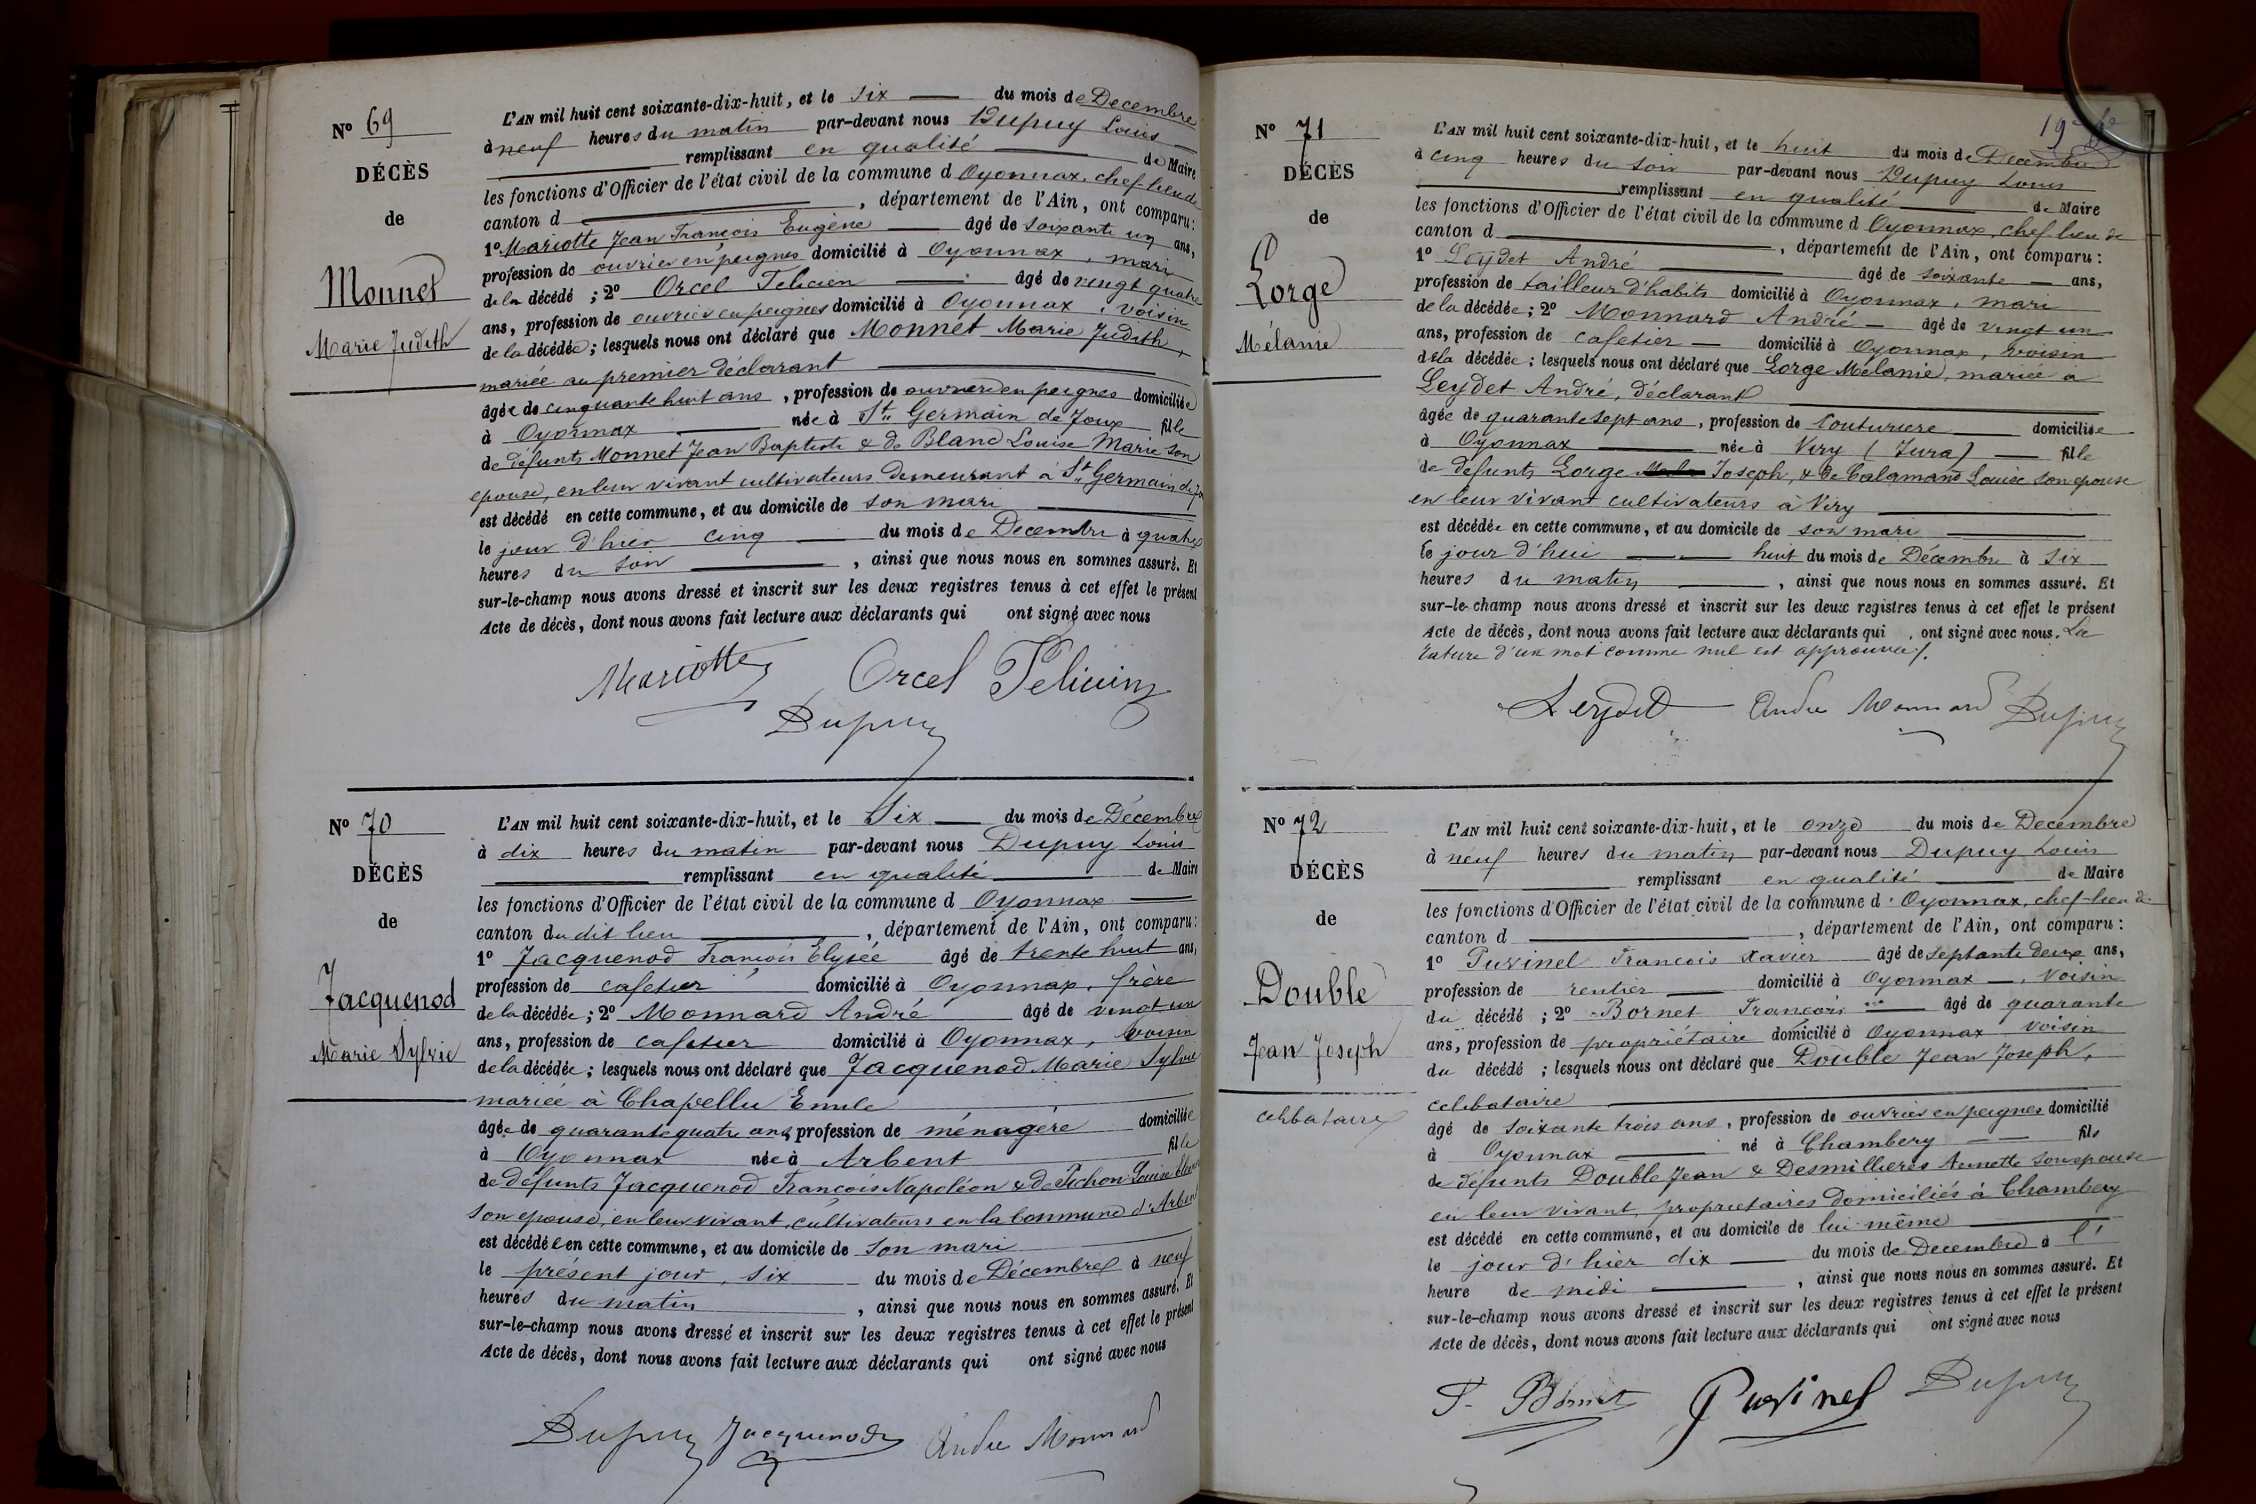 Nº 69
DÉCÈS
de
Monnet
Marie Judith
L'AN mil huit cent soixante-dix-huit, et le Six du mois de Decembre
à neuf heures du matin par-devant nous Dupuy Louis
remplissant en qualité de Maire
les fonctions d'Officier de l'état civil de la commune d Oyonnax, chef-lieu de
canton d , département de l'Ain, ont comparu :
1º Mariotte Jean François Eugène âgé de soixante un ans,
profession de ouvrier en peignes domicilié à Oyonnax, mari
de la décédé ; 2º Orcel Felicien âgé de vingt quatre
ans, profession de ouvrier en peignes domicilié à Oyonnax, voisin
de la décédée ; lesquels nous ont déclaré que Monnet Marie Judith,
mariée au premier déclarant
âgée de cinquante huit ans, profession de ouvrière en peignes domiciliée
à Oyonnax née à St Germain de Joux fille
de défunts Monnet Jean Baptiste & de Blanc Louise Marie son
epouse, en leur vivant cultivateurs demeurant à St Germain de
est décédé en cette commune, et au domicile de son mari
le jour d'hier cinq du mois de Decembre à quatre
heures du soir , ainsi que nous nous en sommes assuré. Et
sur-le-champ nous avons dressé et inscrit sur les deux registres tenus à cet effet le présent
Acte de décès, dont nous avons fait lecture aux déclarants qui ont signé avec nous
Mariotte Orcel Felicien
Dupuy
Nº 70
DÉCÈS
de
Jacquenod
Marie Sylvie
L'AN mil huit cent soixante-dix-huit, et le Six du mois de Décembre
à dix heures du matin par-devant nous Dupuy Louis
remplissant en qualité de Maire
les fonctions d'Officier de l'état civil de la commune d Oyonnax
canton du dit lieu , département de l'Ain, ont comparu :
1º Jacquenod François Elysée âgé de trente huit ans,
profession de cafetier domicilié à Oyonnax, frère
de la décédée ; 2º Monnard André âgé de vingt un
ans, profession de cafetier domicilié à Oyonnax, voisin
de la décédée ; lesquels nous ont déclaré que Jacquenod Marie Sylvie
mariée à Chapellu Emile
âgée de quarante quatre ans, profession de ménagère domiciliée
à Oyonnax née à Arbent fille
de défunts Jacquenod François Napoléon & de Pichon Louise
son epouse, en leur vivant, cultivateurs en la Commune d'Arbent
est décédée en cette commune, et au domicile de son mari
le présent jour, six du mois de Décembre à neuf
heures du matin , ainsi que nous nous en sommes assuré. Et
sur-le-champ nous avons dressé et inscrit sur les deux registres tenus à cet effet le présent
Acte de décès, dont nous avons fait lecture aux déclarants qui ont signé avec nous
Dupuy Jacquenod André Monnard
Nº 71
DÉCÈS
de
Lorge
Mélanie
L'AN mil huit cent soixante-dix-huit, et le huit du mois de Decembre
à cinq heures du soir par-devant nous Dupuy Louis
remplissant en qualité de Maire
les fonctions d'Officier de l'état civil de la commune d Oyonnax, chef-lieu de
canton d , département de l'Ain, ont comparu :
1º Leydet André âgé de soixante ans,
profession de tailleur d'habits domicilié à Oyonnax, mari
de la décédée ; 2º Monnard André âgé de vingt un
ans, profession de cafetier domicilié à Oyonnax, voisin
de la décédée ; lesquels nous ont déclaré que Lorge Mélanie, mariée à
Leydet André, déclarant
âgée de quarante sept ans, profession de Couturière domiciliée
à Oyonnax née à Viry (Jura) fille
de defunts Lorge Joseph, & de Calamand Louise son epouse
en leur vivant cultivateurs à Viry
est décédée en cette commune, et au domicile de son mari
le jour d'hui huit du mois de Décembre à six
heures du matin , ainsi que nous nous en sommes assuré. Et
sur-le-champ nous avons dressé et inscrit sur les deux registres tenus à cet effet le présent
Acte de décès, dont nous avons fait lecture aux déclarants qui ont signé avec nous. La
rature d'un mot comme nul est approuvée.
Leydet André Monnard Dupuy
Nº 72
DÉCÈS
de
Double
Jean Joseph
celibataire
L'AN mil huit cent soixante-dix-huit, et le onze du mois de Decembre
à neuf heures du matin par-devant nous Dupuy Louis
remplissant en qualité de Maire
les fonctions d'Officier de l'état civil de la commune d'Oyonnax, chef-lieu de
canton d , département de l'Ain, ont comparu :
1º Puvinel François Xavier âgé de septante deux ans,
profession de rentier domicilié à Oyonnax, Voisin
du décédé ; 2º Bornet François âgé de quarante
ans, profession de propriétaire domicilié à Oyonnax voisin
du décédé ; lesquels nous ont déclaré que Double Jean Joseph,
celibataire
âgé de soixante trois ans, profession de ouvrier en peignes domicilié
à Oyonnax né à Chambery fils
de défunts Double Jean & Desmillieres Annette son epouse
en leur vivant, proprietaires domiciliés à Chambery
est décédé en cette commune, et au domicile de lui même
le jour d'hier dix du mois de Decembre à l'
heure de midi , ainsi que nous nous en sommes assuré. Et
sur-le-champ nous avons dressé et inscrit sur les deux registres tenus à cet effet le présent
Acte de décès, dont nous avons fait lecture aux déclarants qui ont signé avec nous
F. Bornet Puvinel Dupuy